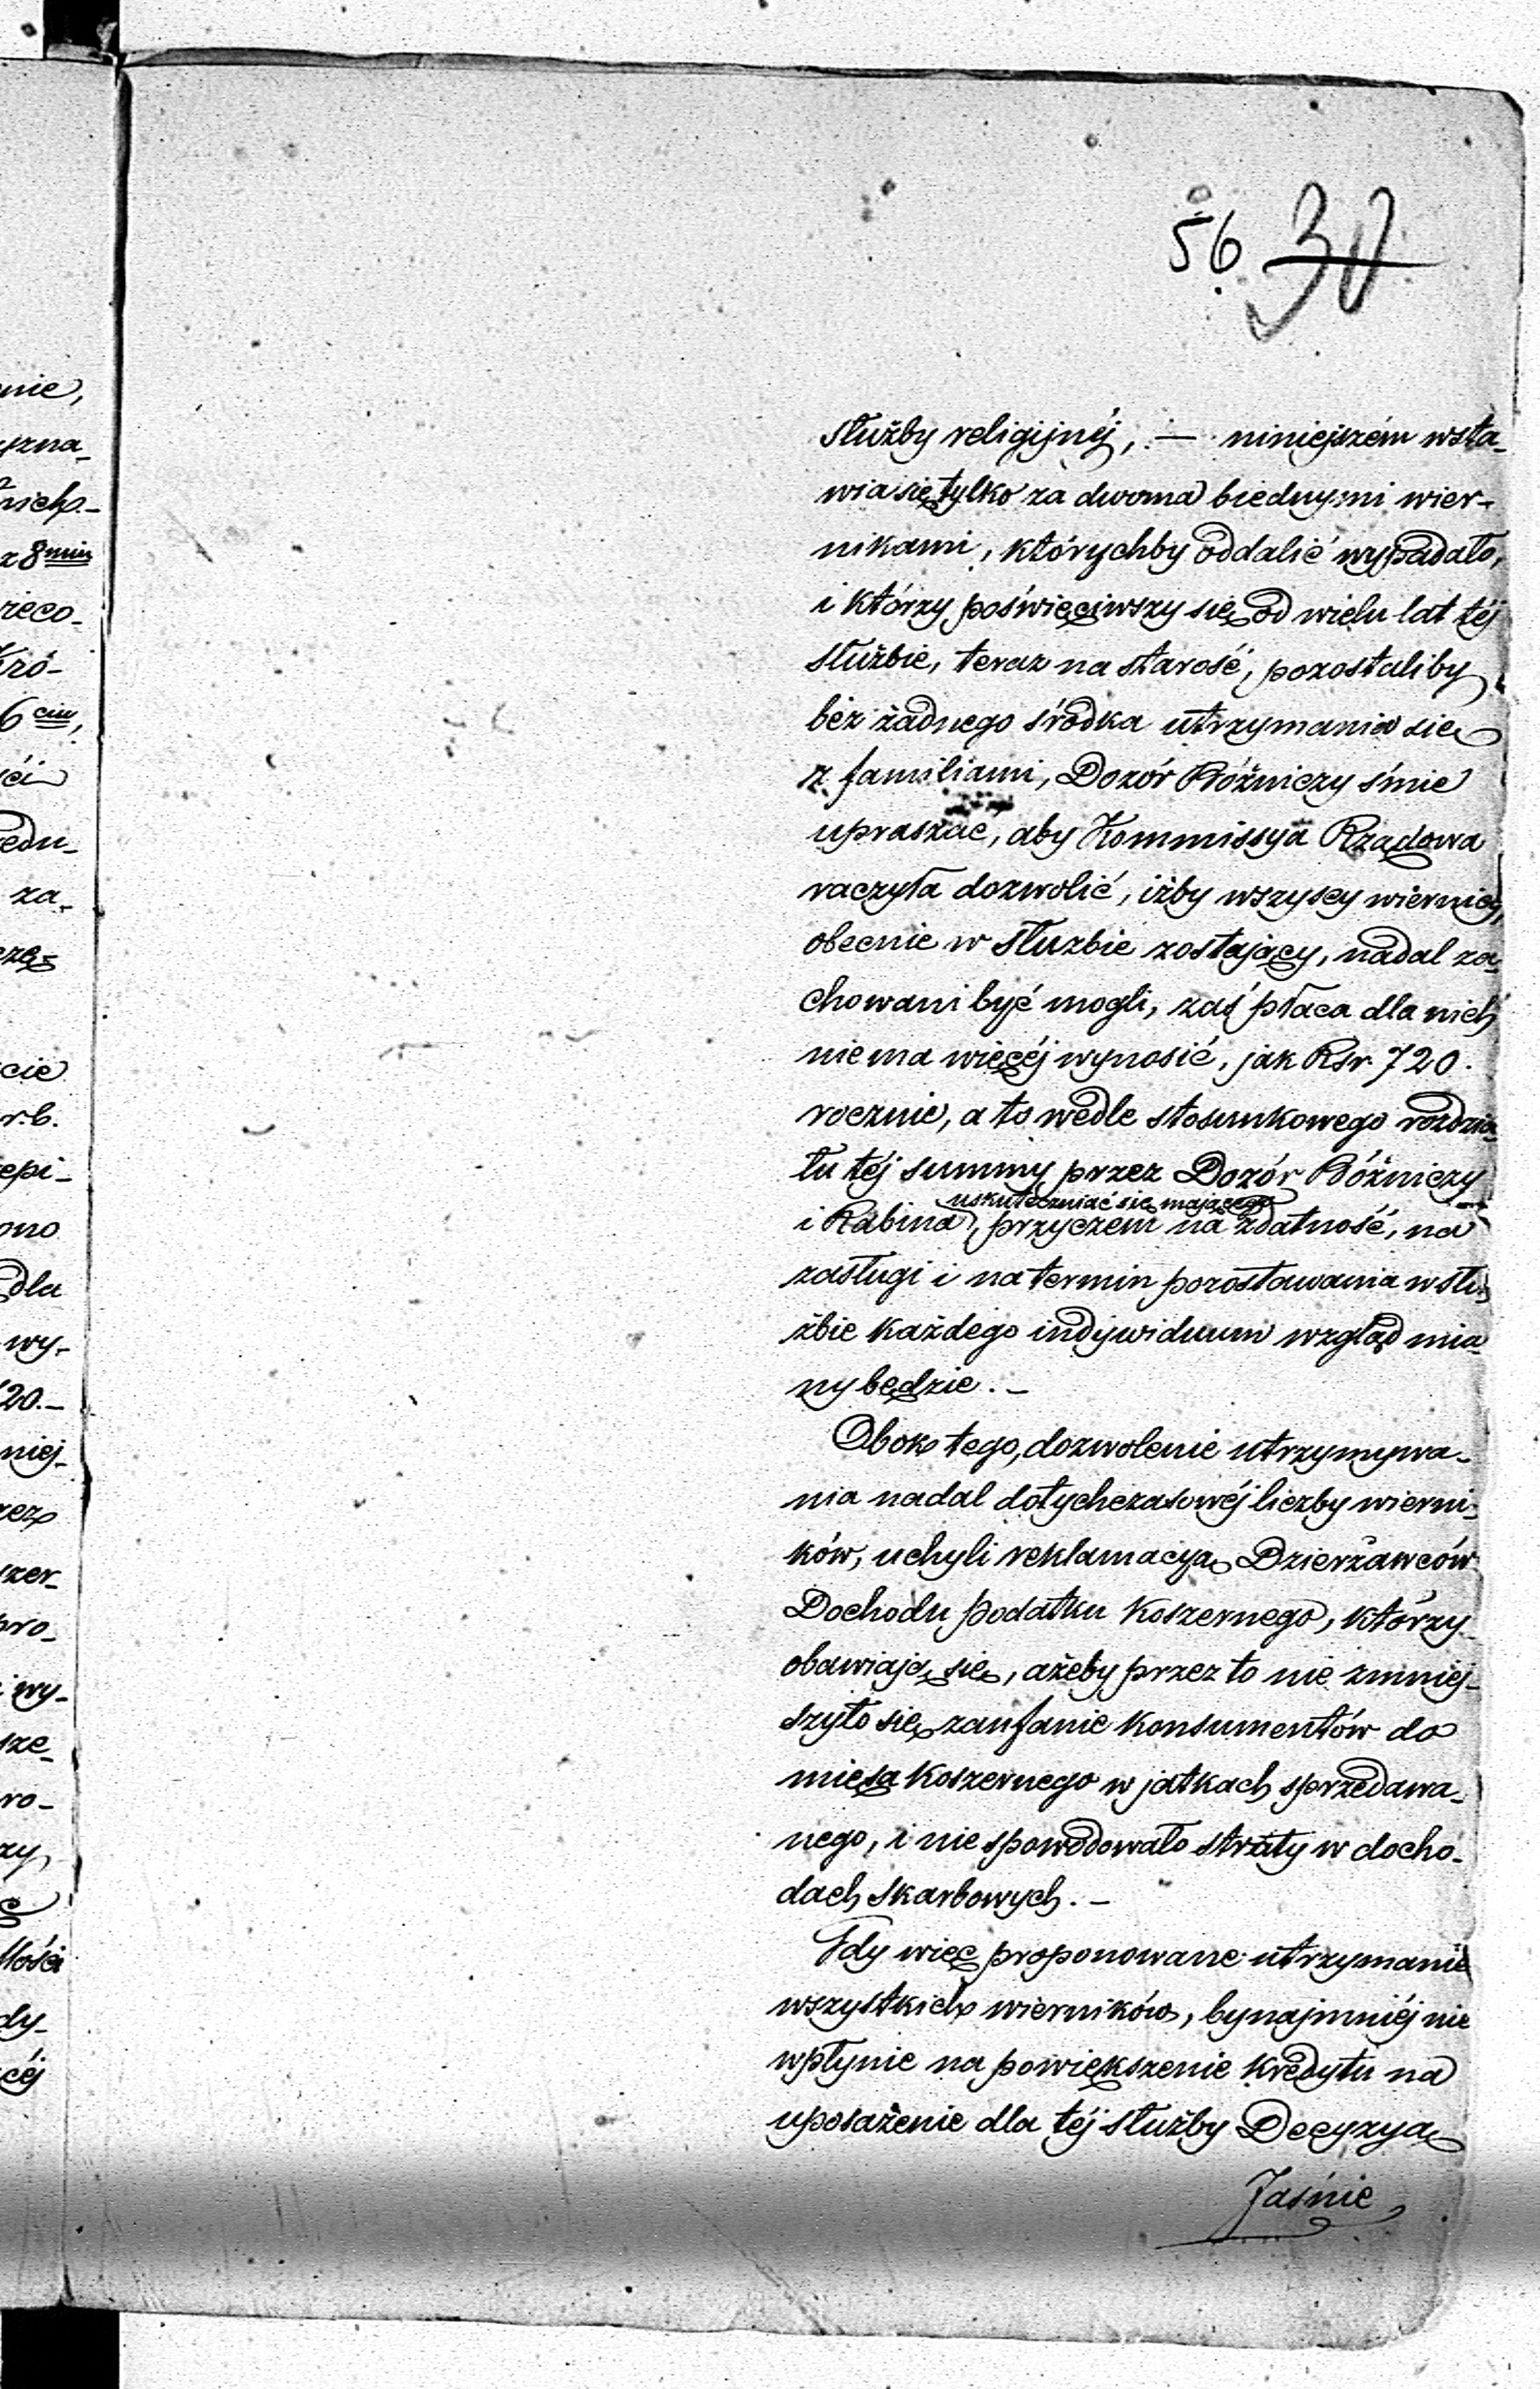 56 30
służby religijnéj, — niniejszém wsta-
wia się tylko za dwoma biednymi wier-
nikami, którychby oddalić wypadało,
i którzy poświęciwszy się od wielu lat téj
służbie, teraz na starość, pozostaliby
bez żadnego środka utrzymania się
z familiami, Dozór Bóżniczy śmie
upraszać, aby Kommissya Rządowa
raczyła dozwolić, iżby wszyscy wiernicy,
obecnie w służbie zostający, nadal za-
chowani być mogli, zaś płaca dla nich
nie ma więcéj wynosić, jak Rsr. 720.
rocznie, a to wedle stosunkowego rozdzia-
łu téj summy przez Dozór Bóżniczy
uskuteczniać się mającego
i Rabina, przyczem na zdatność, na
zasługi i na termin pozostawania w słu-
żbie każdego indywiduum wzgląd mia-
ny będzie. —
Obok tego, dozwolenie utrzymywa-
nia nadal dotychczasowéj liczby wierni-
ków, uchyli reklamacyą Dzierżawców
Dochodu podatku koszernego, którzy
obawiają się, ażeby przez to nie zmniej-
szyło się zaufanie konsumentów do
mięsa koszernego w jatkach sprzedawa-
nego, i nie spowodowało straty w docho-
dach skarbowych. —
Gdy więc proponowane utrzymanie
wszystkich wierników, bynajmniéj nie
wpłynie na powiększenie kredytu na
uposażenie dla téj służby Decyzya
Jaśnie
nie,
yzna-
nich-
z 8min
ieco-
6ciu,
edu-
za-
cie
r.b.
epi-
ono
dla
wy-
20.—
niej-
zer-
pro-
wy-
sze-
ro-
zy
łości
dy-
céj